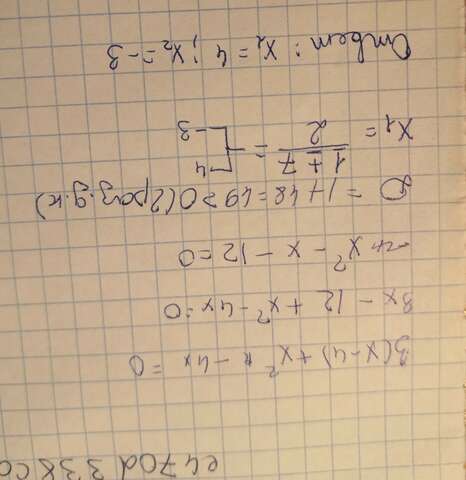 3(x-4)+x² - 4x = 0
3x - 12 + x² - 4x = 0
x² - x - 12 = 0
D = 1+48 = 49 > 0 (2 разд.к)
x₁ = 1 ∓ 7 / 2 = [ 4 -3
Ответ: x₁ = 4; x₂ = -3